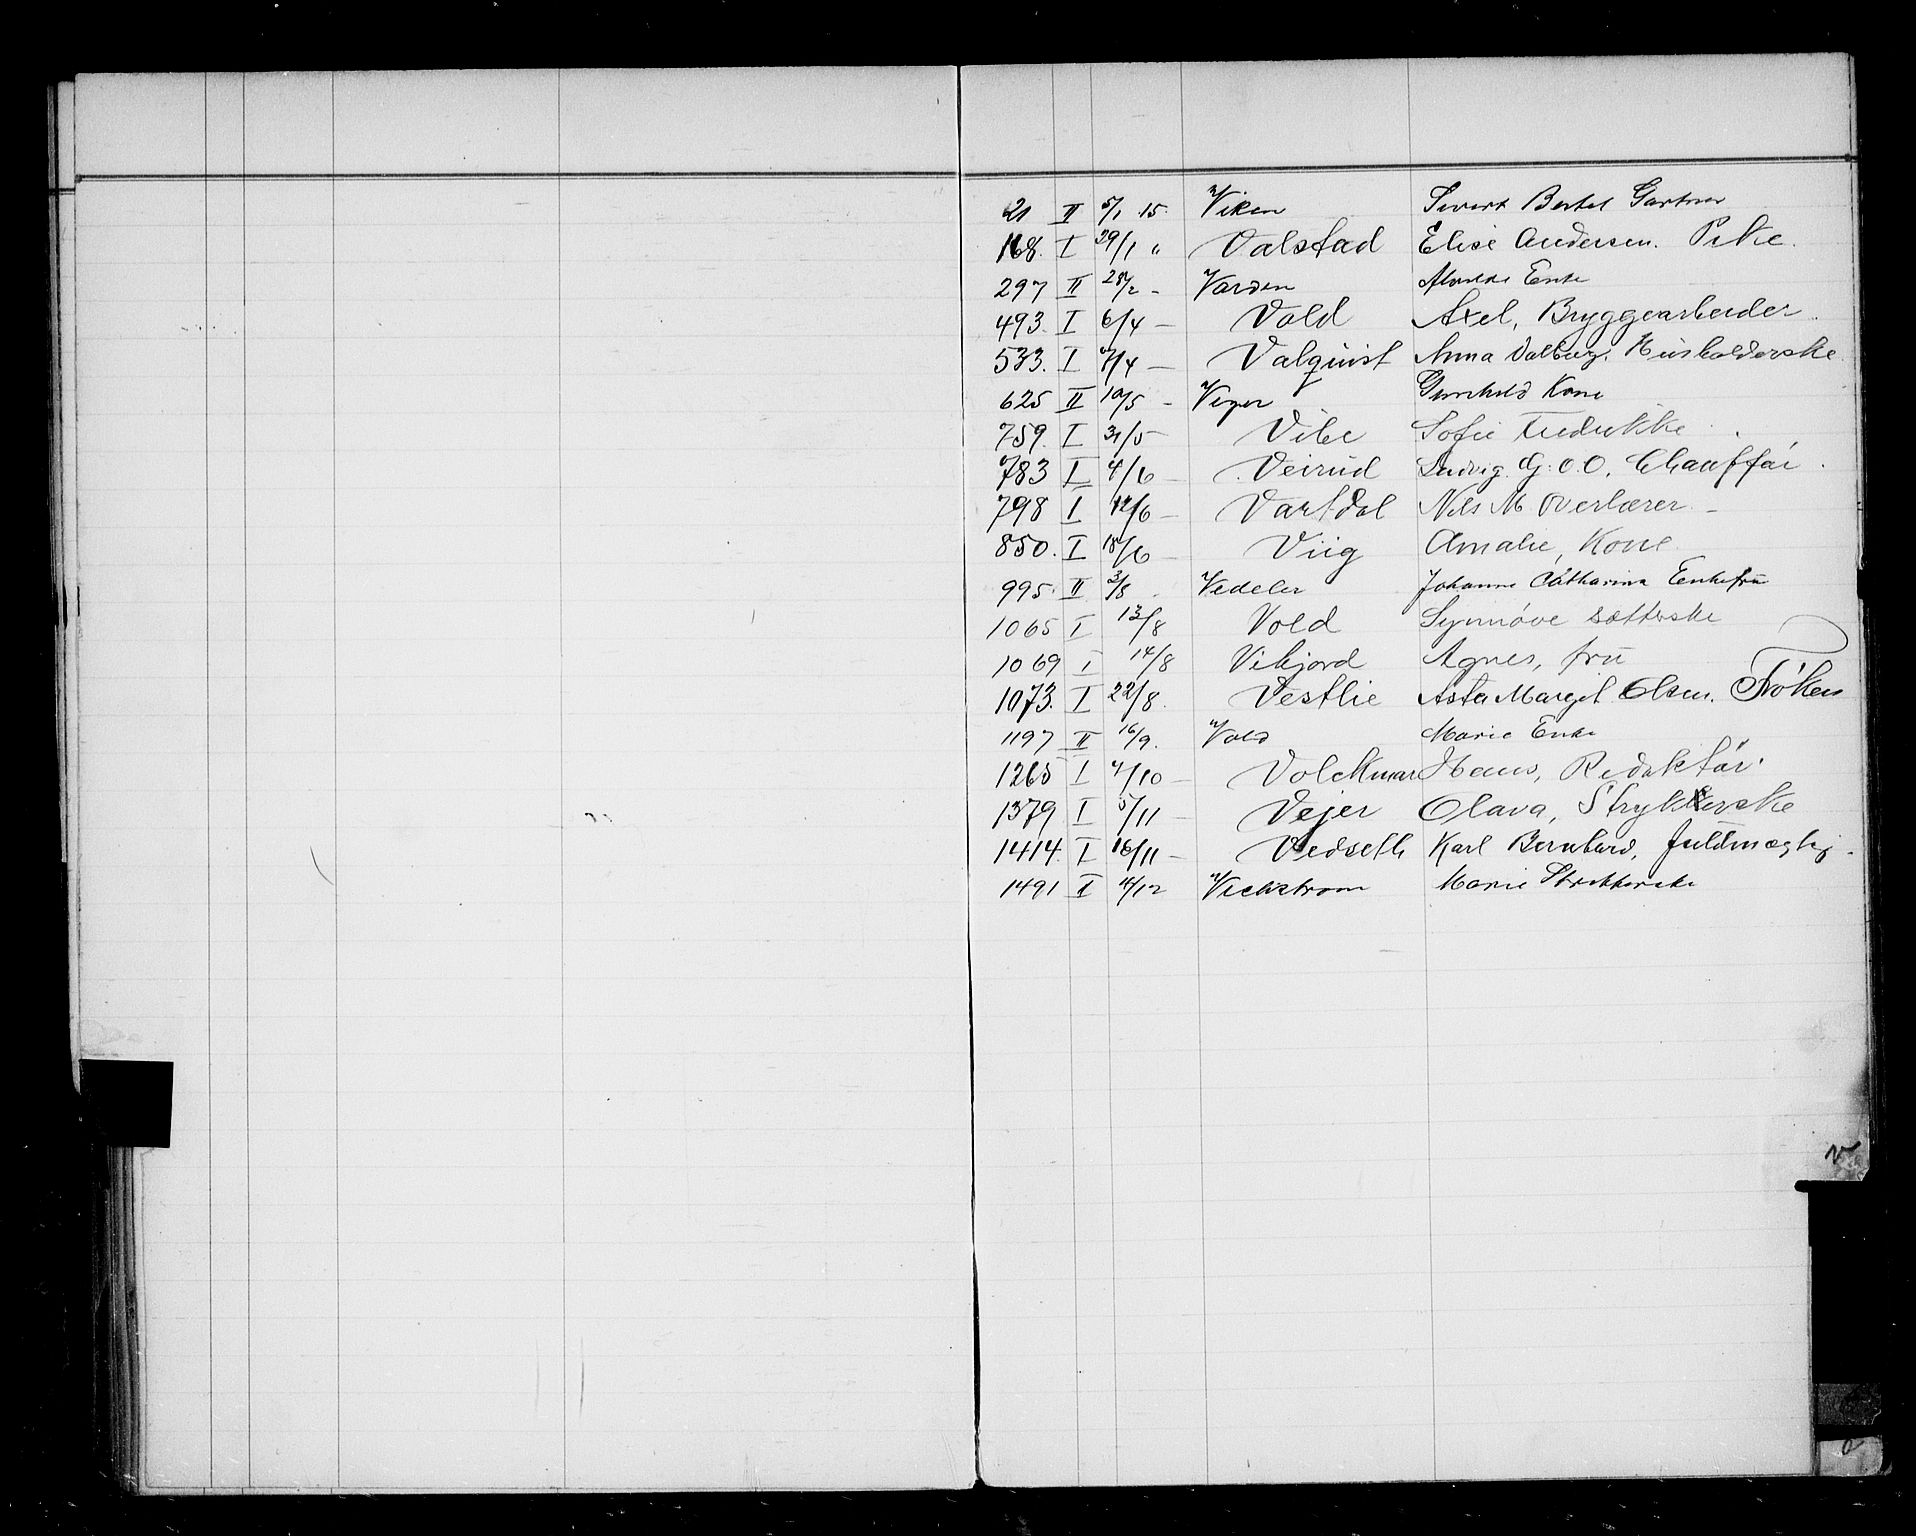 21 II 5/1 15. Viken Sivert Bertel Gartner
168. I 29/1 " Valstad Elise Andersen. Pike.
297 II 28/2 - Varden Enke
493. I 6/4 - Vold Axel, Bryggearbeider.
533. I 7/4 - Valquist Anna Valborg. Husholderske
625 II 10/5 - Veger Gunhild Kone
759. I 31/5 - Vibe Sofie Fredrikke
783 I 4/6 - Veirud Ludvig. G: O.O. Chauffør.
798 I 12/6 - Vartdal Nils M. Overlærer -
850. I 18/6 - Viig Amalie, Kone
995. II 3/8 Vedeler Johanne Catharina Enkefru
1065 I 13/8 Vold Synnøve sætterske
1069 I 14/8 Vikjord Agnes, fru
1073. I 22/8. Vestlie Asta Margit Olsen. Frøken
1197 II 16/9. Vold Marie Enke
1265 I 4/10 - Volckmar Hans, Redaktør.
1379 I 5/11 - Vejer Olava, Strykerske
1414. I 16/11 - Vedseth Karl Bernhard, fuldmægtig.
1491 II 14/12 Vickstrøm Marie Strikkerske
V